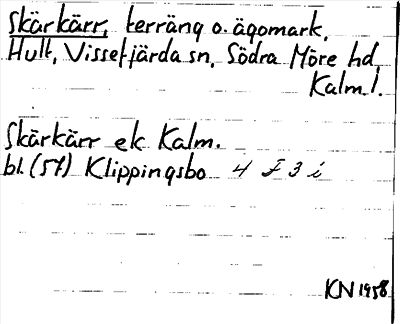 Skärkärr, terräng o. ägomark,
Hult, Vissefjärda sn, Södra Möre hd
Kalm. l.
Skärkärr ek Kalm.
bl. (57) Klippingsbo 4 F 3 i
KN 1958